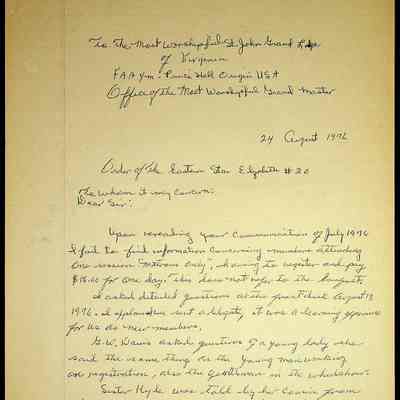 To The Most Worshipful St. John Grand Lodge
of Virginia
F.A.A.Y.m. Prince Hall Origin USA
Office of the Most Worshipful Grand Master
24 August 1976
Order of the Eastern Star Elizabeth #20
To Whom it may Concern:
Dear Sir:
Upon rereading your Communication of July 1976
I fail to find information concerning members attending
One session Saturday Only, having to register and pay
$15.00 for one day. This does not refer to the banquet.
I asked detailed questions at the
1976. I explained sent a delegate, it was a learning experience
for us as new members.
G.W. Davis asked questions of a young lady who
said the same thing as the young man working
on registration, also the gentleman in the wheelchair.
Sister Hyde was told by her Cousin from